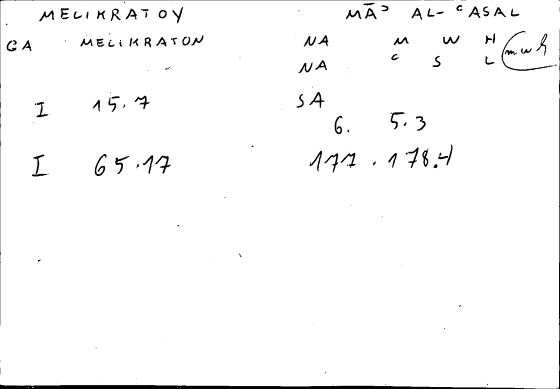 MELIKRATOY MĀʾ AL-ʿASAL
GA MELIKRATON NA M W H (mwh
NA ʿ S L
I 15.7 SA
6. 5.3
I 65.17 177.178.4